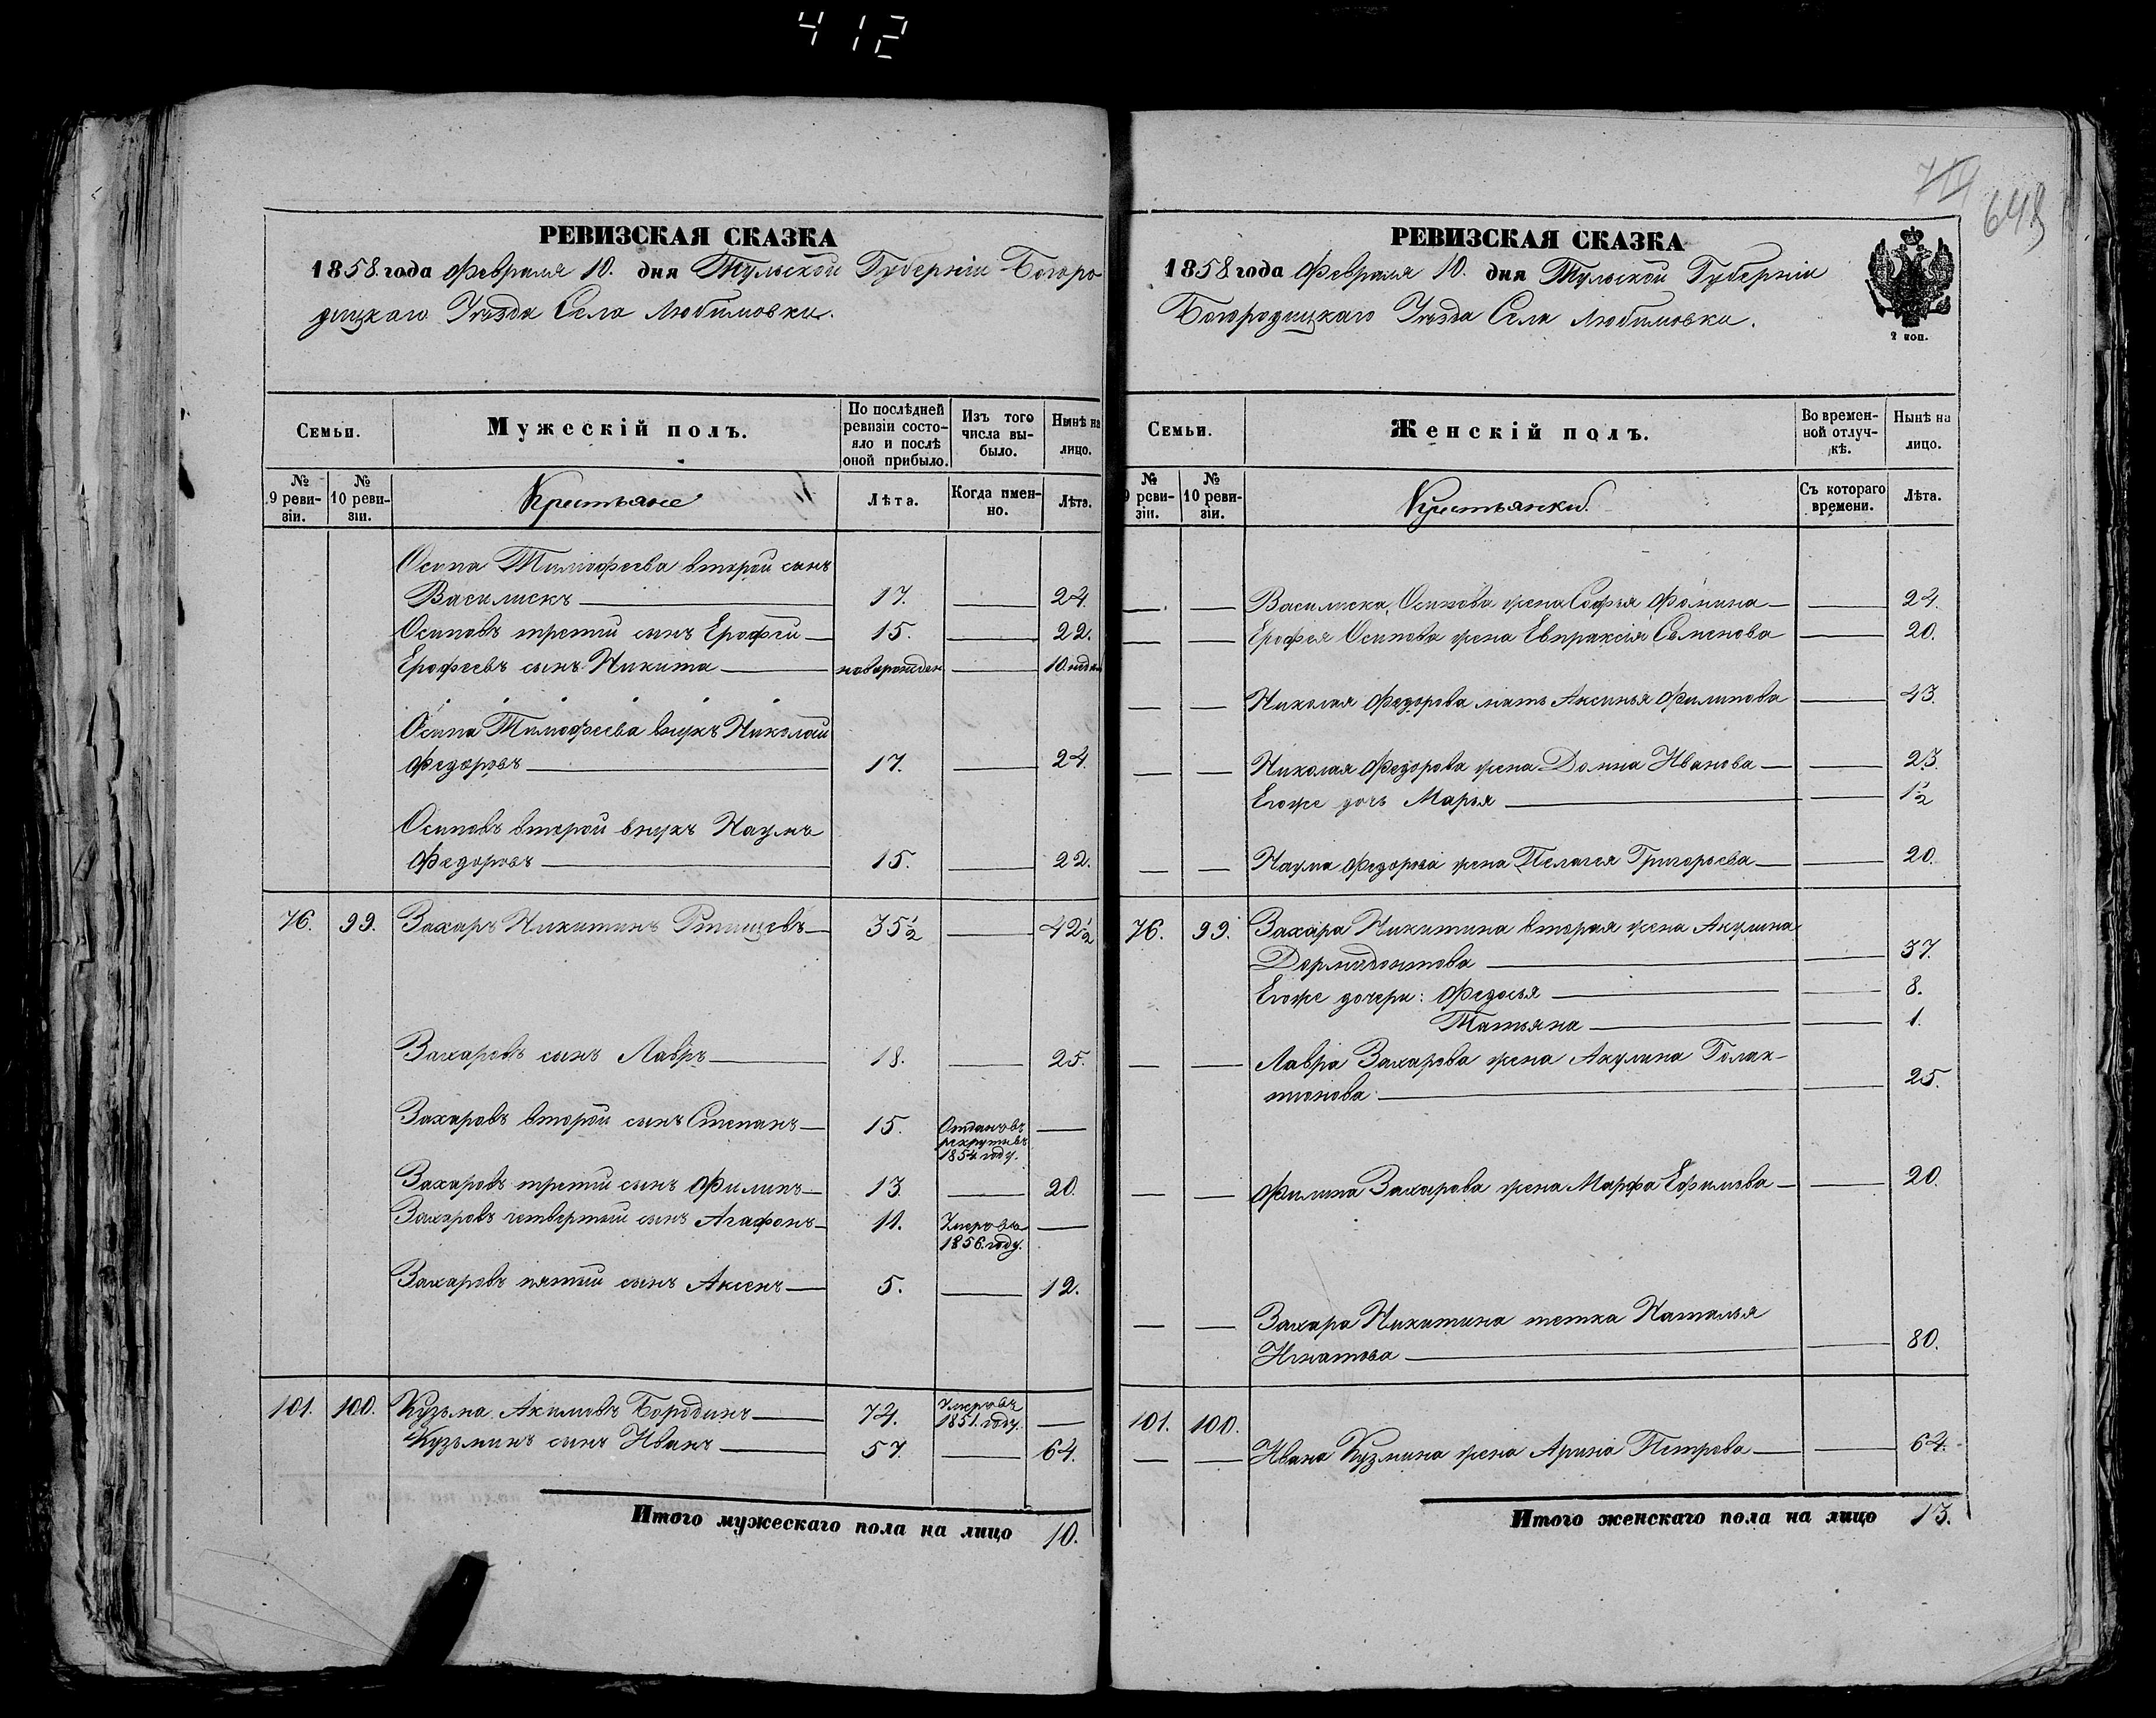 412
РЕВИЗСКАЯ СКАЗКА
1858 года Февраля 10. дня Тульской Губерніи Богоро
дицкаго Уѣзда Села Любимовки.
Семьи.
Мужескій полъ.
По послѣдней ревизіи состояло и послѣ оной прибыло.
Изъ того числа выбыло.
Нынѣ на лицо.
№ 9 ревизіи.
№ 10 ревизіи.
Крестьяне
Лѣта.
Когда именно.
Лѣта.
Осипа Тимофеева второй сынъ
Василискъ 17. 24.
Осиповъ третий сынъ Ерофей 15. 22.
Ерофеевъ сынъ Никита новорожден 10. недел
Осипа Тимофеева внукъ Николай
Федоровъ 17. 24.
Осиповъ второй внукъ Наумъ
Федоровъ 15. 22.
76. 99. Захаръ Никитинъ 35½ 42½
Захаровъ сынъ Лавръ 18. 25.
Захаровъ второй сынъ Степанъ 15. Отданъ въ
рекруты въ
1854 году.
Захаровъ третий сынъ Филипъ 13. 20.
Захаровъ четвертый сынъ Агафонъ 11. Умеръ въ
1856 году.
Захаровъ пятый сынъ Аксенъ 5. 12.
101. 100. Кузьма Акимовъ Бородинъ 74. Умеръ въ
1851. году.
Кузьминъ сынъ Иванъ 57. 64.
Итого мужескаго пола на лицо 10.
648
РЕВИЗСКАЯ СКАЗКА
1858 года Февраля 10. дня Тульской Губерніи
Богородицкаго Уѣзда Села Любимовки.
2 коп.
Семьи.
Женскій полъ.
Во временной отлучкѣ.
Нынѣ на лицо.
№ 9 ревизіи.
№ 10 ревизіи.
Крестьянки.
Съ котораго времени.
Лѣта.
Василиска Осипова жена Софья Фомина 24.
Ерофея Осипова жена Евпраксія Семенова 20.
Николая Федорова мать Аксинья Филипова 43.
Николая Федорова жена Домна Иванова 23.
Егоже дочь Марья 1½
Наума Федорова жена Пелагея Григорьева 20.
76. 99. Захара Никитина вторая жена Акулина
Дормидонтова 37.
Егоже дочери: Федосья 8.
Татьяна 1.
Лавра Захарова жена Акулина Голак-
тионова 25.
Филипа Захарова жена Марфа Ефимова 20.
Захара Никитина тетка Наталья
Игнатова 80.
101. 100.
Ивана Кузмина жена Арина Петрова 64.
Итого женскаго пола на лицо 13.